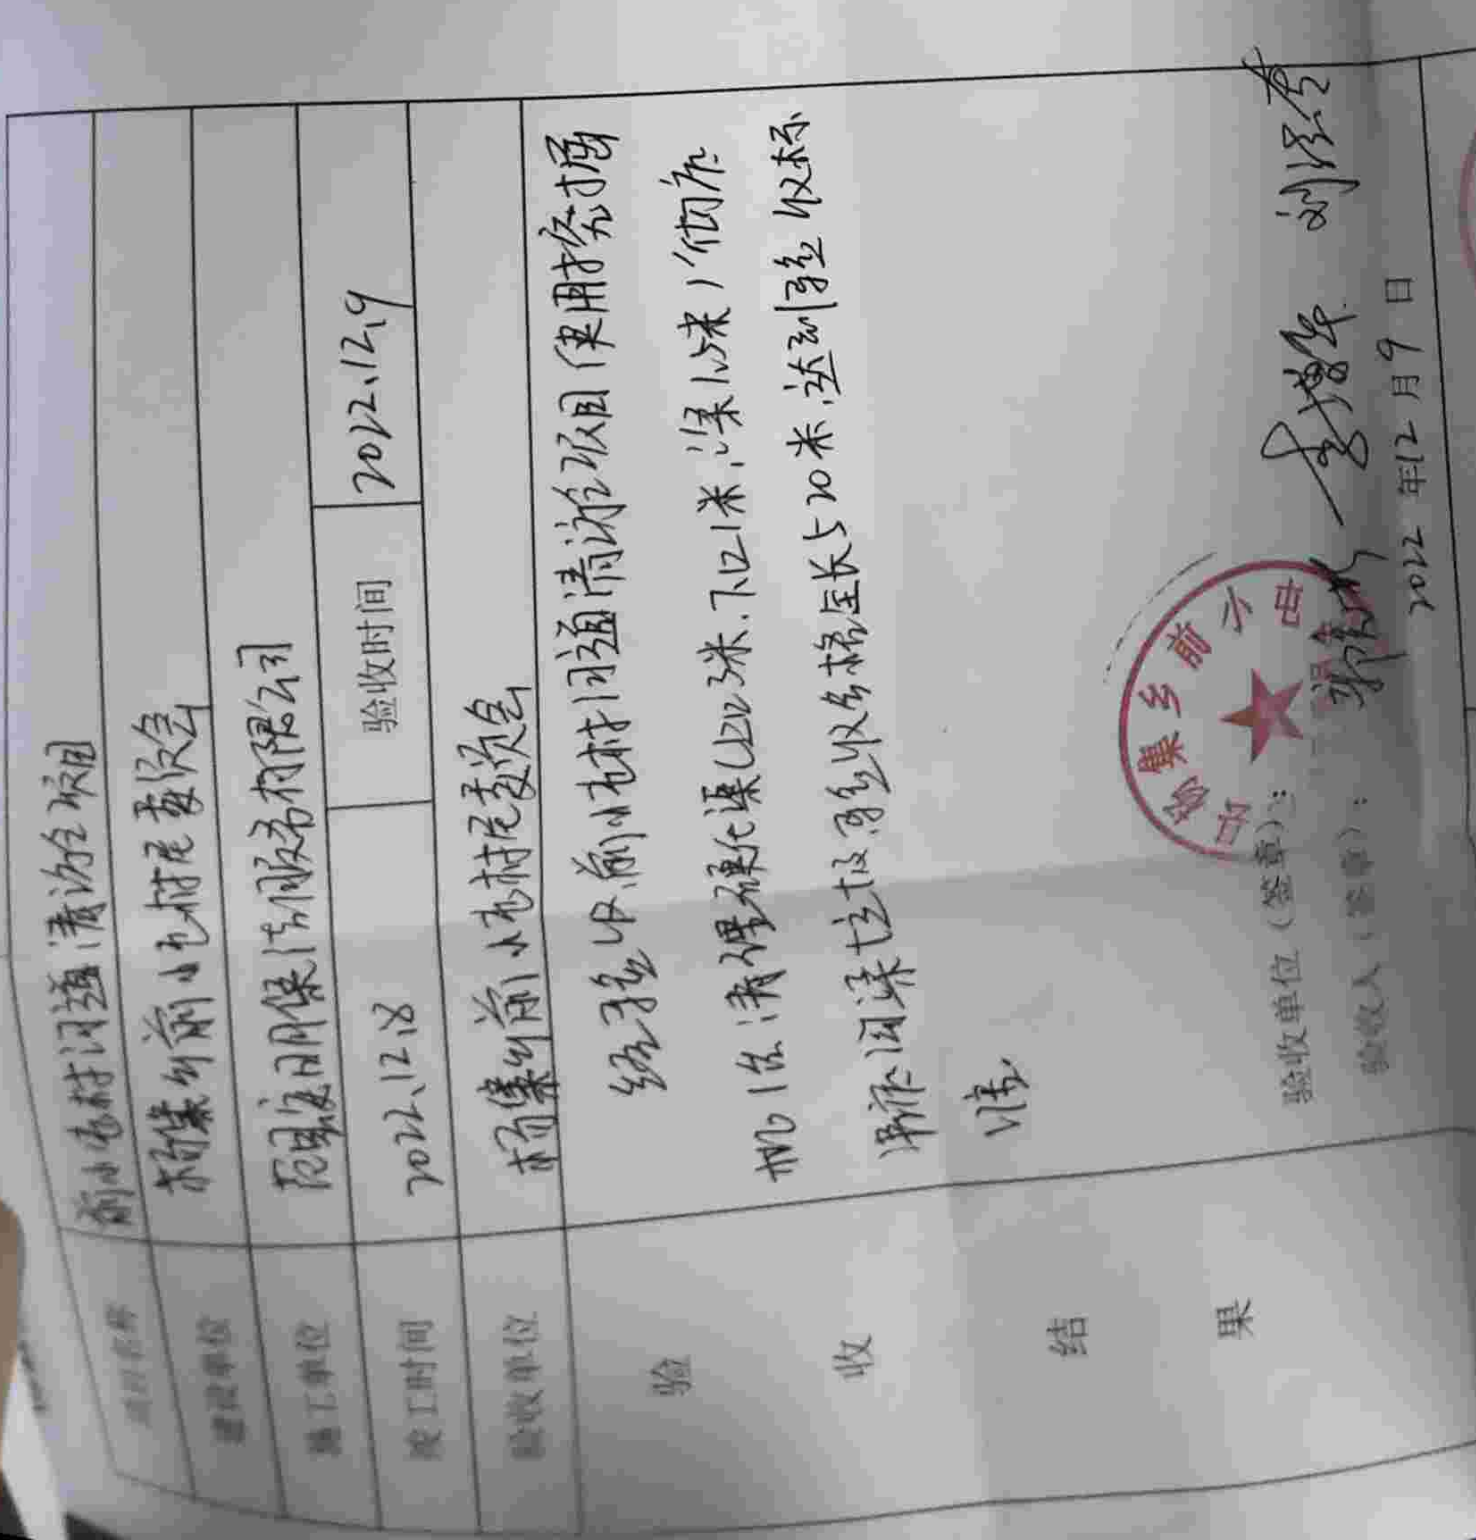 项目名称 前小屯村沟道清淤项目
建设单位 杨集乡前小屯村民委员会
施工单位 有限公司
竣工时间 2022.12.8 验收时间 2022.12.9
验收单位 杨集乡前小屯村民委员会
验收结果
经验收前小屯村沟道清淤项目使用挖掘
机1台,清理硬化渠(上口3米,下口1米,深1.5米)
全长520米,达到验收标
准
验收单位(签章):
验收人(签章):
2022年12月9日
杨集乡前小屯